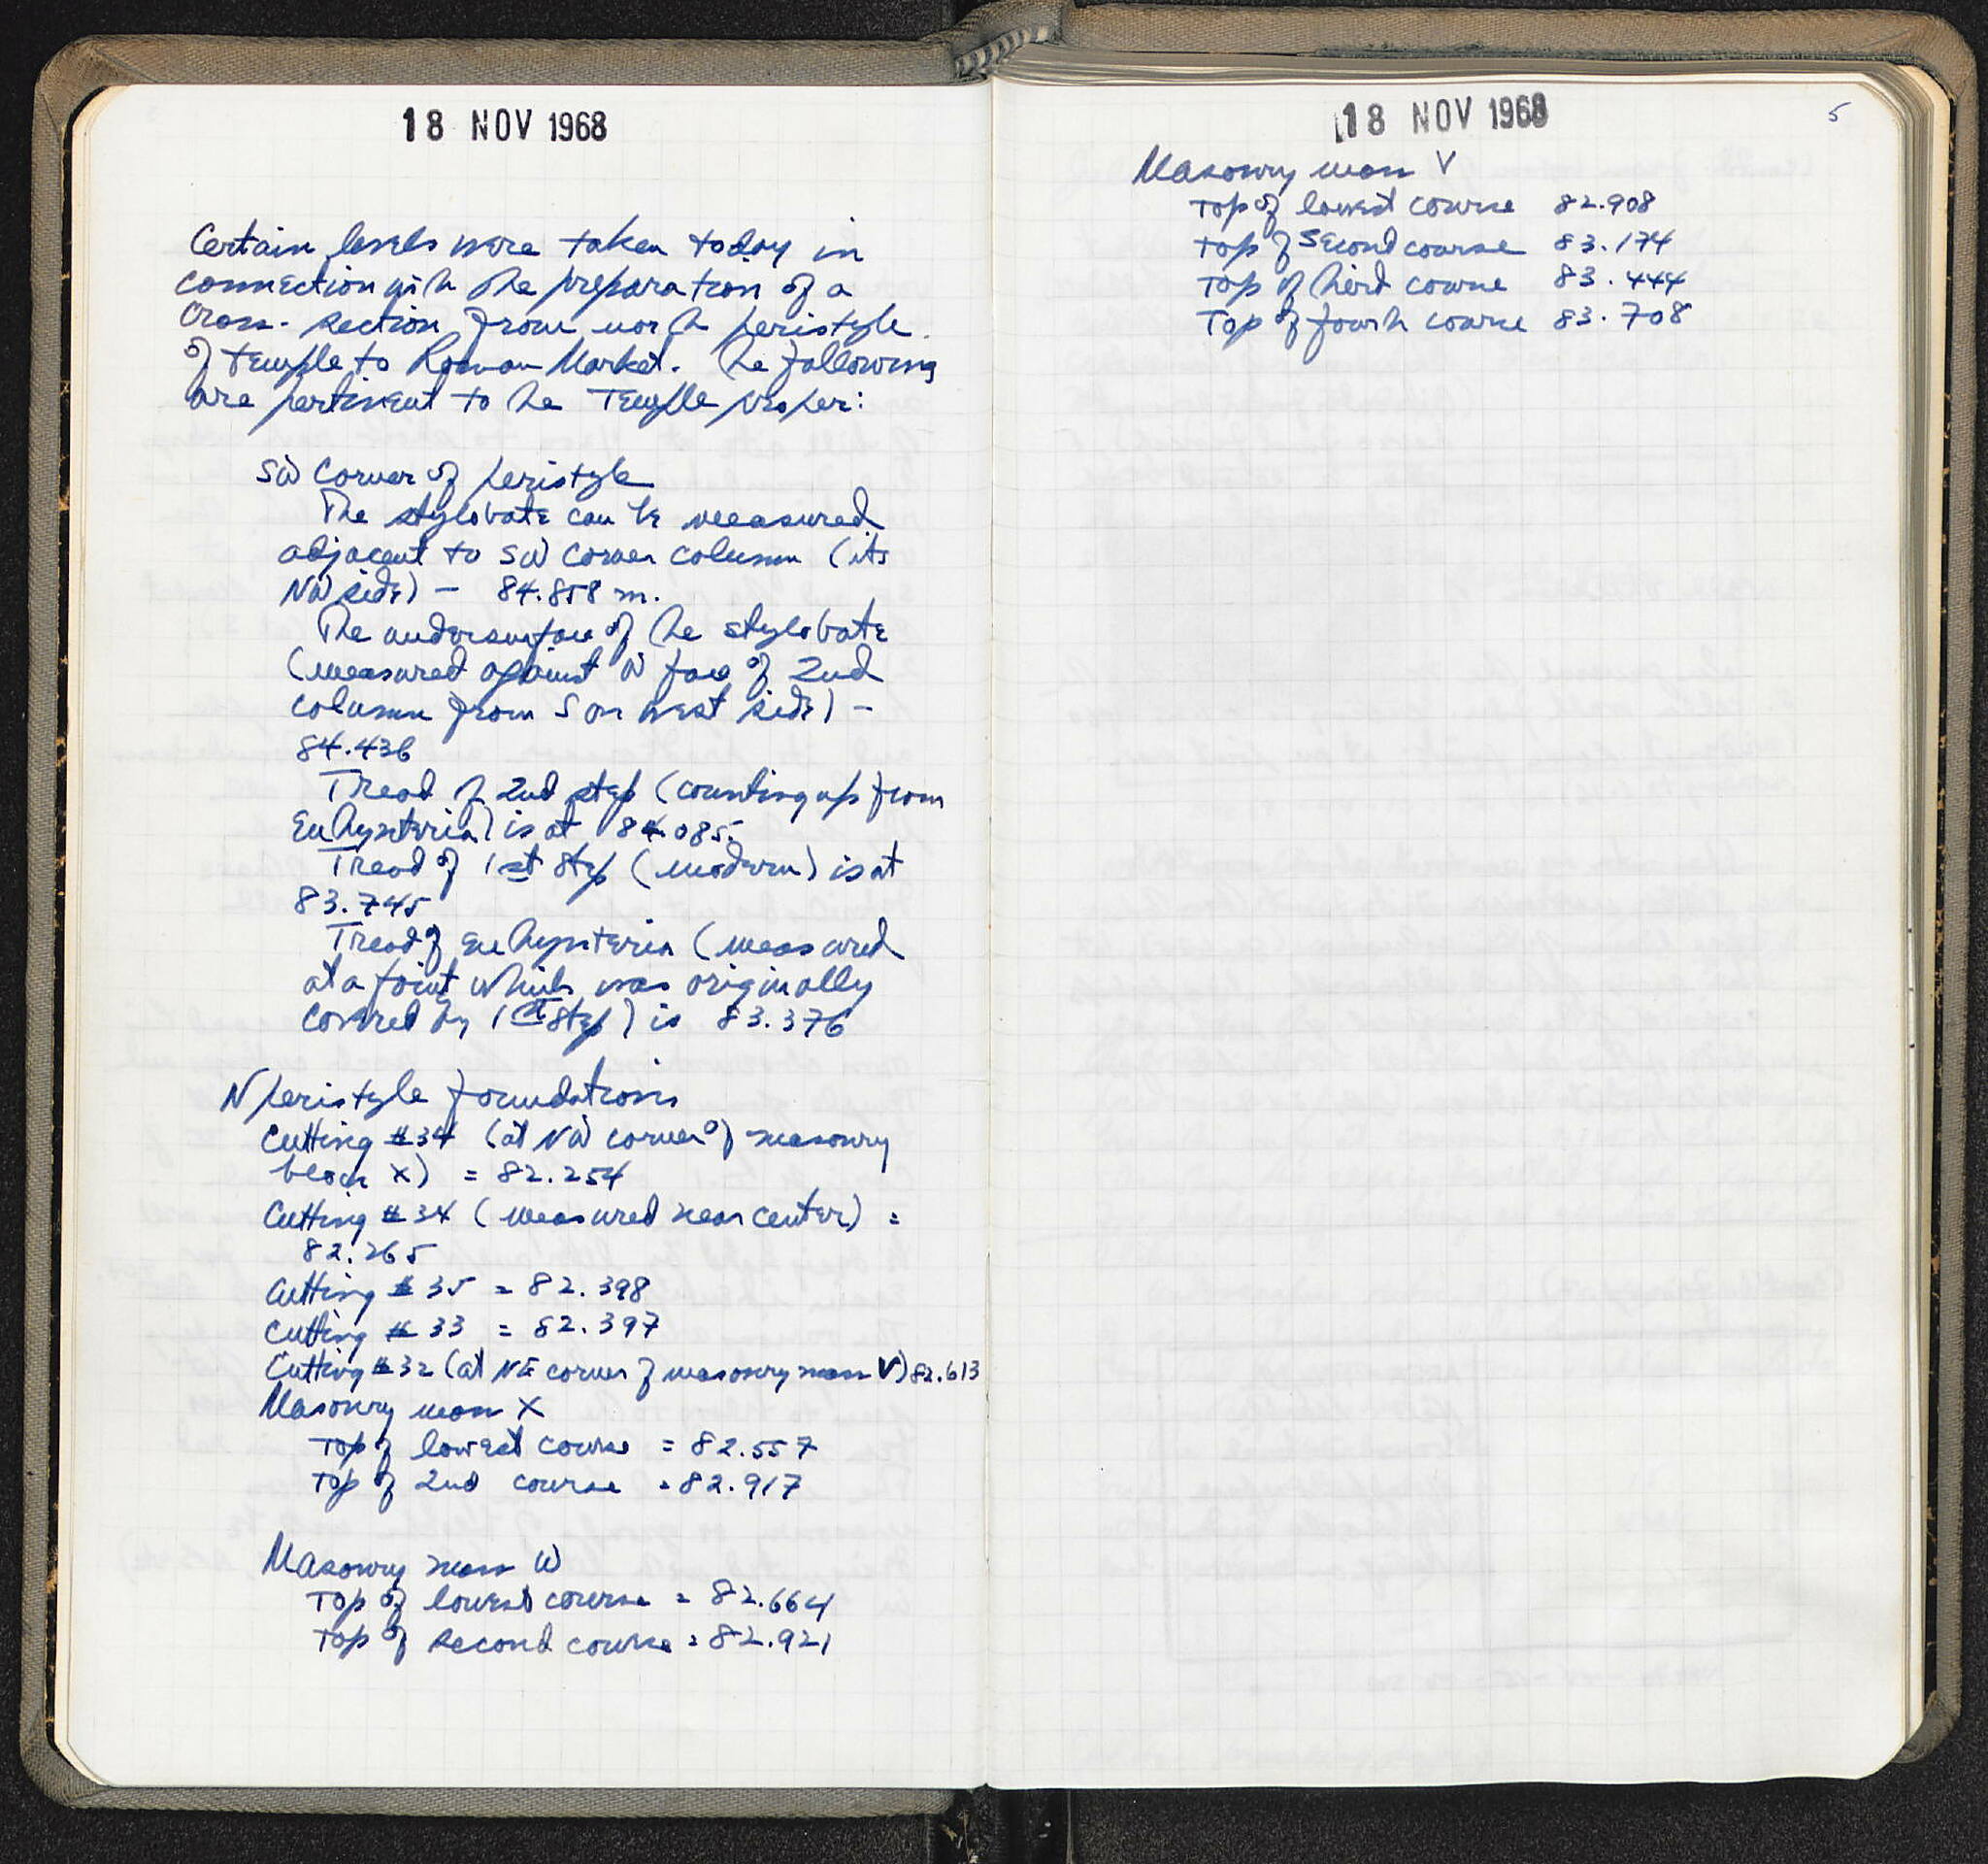 18 NOV 1968
Certain levels were taken today in
connection with the preparation of a
cross-section from north peristyle
of Temple to Roman Market. The following
are pertinent to the Temple proper:
SW Corner of peristyle
The stylobate can be measured
adjacent to SW corner column (its
NW side) - 84.858 m.
The undersurface of the stylobate
(measured against N face of 2nd
column from S on west side) -
84.436
Tread of 2nd step (counting up from
Euthynteria) is at 84.085.
Tread of 1st step (modern) is at
83.745
Tread of Euthynteria (measured
at a joint which was originally
covered by 1st step) is 83.376
N peristyle foundations
Cutting #34 (at NW corner of masonry
block X) = 82.254
Cutting #34 (measured near center) =
82.265
Cutting #35 = 82.398
Cutting #33 = 82.397
Cutting #32 (at NE corner of masonry mass V) 82.613
Masonry mass X
Top of lowest course = 82.557
Top of 2nd course = 82.917
Masonry mass W
Top of lowest course = 82.664
Top of second course = 82.921
18 NOV 1968
5
Masonry mass V
Top of lowest course 82.908
Top of second course 83.174
Top of third course 83.444
Top of fourth course 83.708